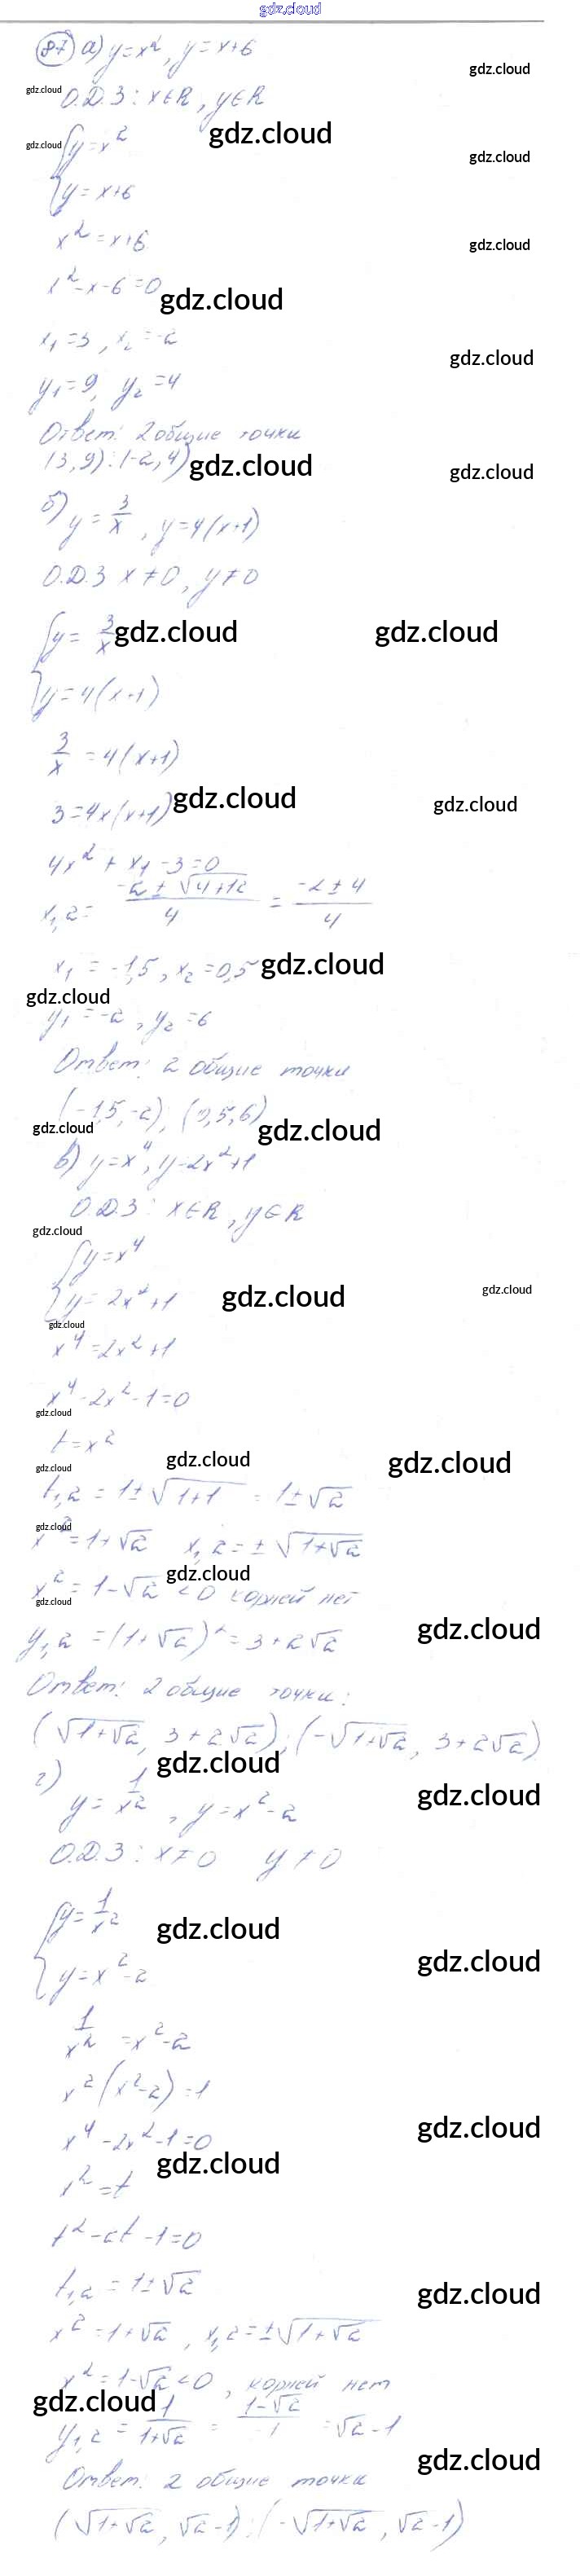 gdz.cloud
87 а) y=x², y=x+6
gdz.cloud
gdz.cloud О.Д.З: x∈R, y∈R
gdz.cloud
gdz.cloud { y=x²
gdz.cloud
y=x+6
x²=x+6
gdz.cloud
x²-x-6=0
gdz.cloud
x₁=3, x₂=-2
gdz.cloud
y₁=9, y₂=4
Ответ: 2 общие точки
(3,9);(-2,4)
gdz.cloud
gdz.cloud
б) y=3/x, y=4(x+1)
О.Д.З x≠0, y≠0
{ y=3/x
gdz.cloud gdz.cloud
y=4(x+1)
3/x =4(x+1)
3=4x(x+1)
gdz.cloud gdz.cloud
4x²+x₁-3=0
x₁,₂= (-2±√4+12)/4 = (-2±4)/4
x₁=-1,5, x₂=0,5
gdz.cloud
gdz.cloud
y₁=-2, y₂=6
Ответ: 2 общие точки
(-1,5,-2); (0,5,6)
gdz.cloud gdz.cloud
в) y=x⁴, y=2x²+1
О.Д.З: x∈R, y∈R
gdz.cloud
{ y=x⁴
y=2x²+1
gdz.cloud gdz.cloud
gdz.cloud
x⁴=2x²+1
x⁴-2x²-1=0
gdz.cloud
t=x²
gdz.cloud gdz.cloud
gdz.cloud
t₁,₂=1±√1+1 = 1±√2
gdz.cloud
x²=1+√2 x₁,₂=±√1+√2
gdz.cloud
x²=1-√2<0 корней нет
gdz.cloud
gdz.cloud
y₁,₂=(1+√2)²=3+2√2
Ответ: 2 общие точки:
(√1+√2, 3+2√2);(-√1+√2, 3+2√2)
gdz.cloud
г) y=1/x², y=x²-2
gdz.cloud
О.Д.З: x≠0 y≠0
{ y=1/x²
gdz.cloud
gdz.cloud
y=x²-2
1/x² =x²-2
x²(x²-2)=1
gdz.cloud
x⁴-2x²-1=0
gdz.cloud
x²=t
t²-2t-1=0
t₁,₂=1±√2
gdz.cloud
x²=1+√2, x₁,₂=±√1+√2
x²=1-√2<0, корней нет
gdz.cloud
y₁,₂= 1/(1+√2) = (1-√2)/-1 =√2-1
gdz.cloud
Ответ: 2 общие точки
(√1+√2, √2-1);(-√1+√2, √2-1)